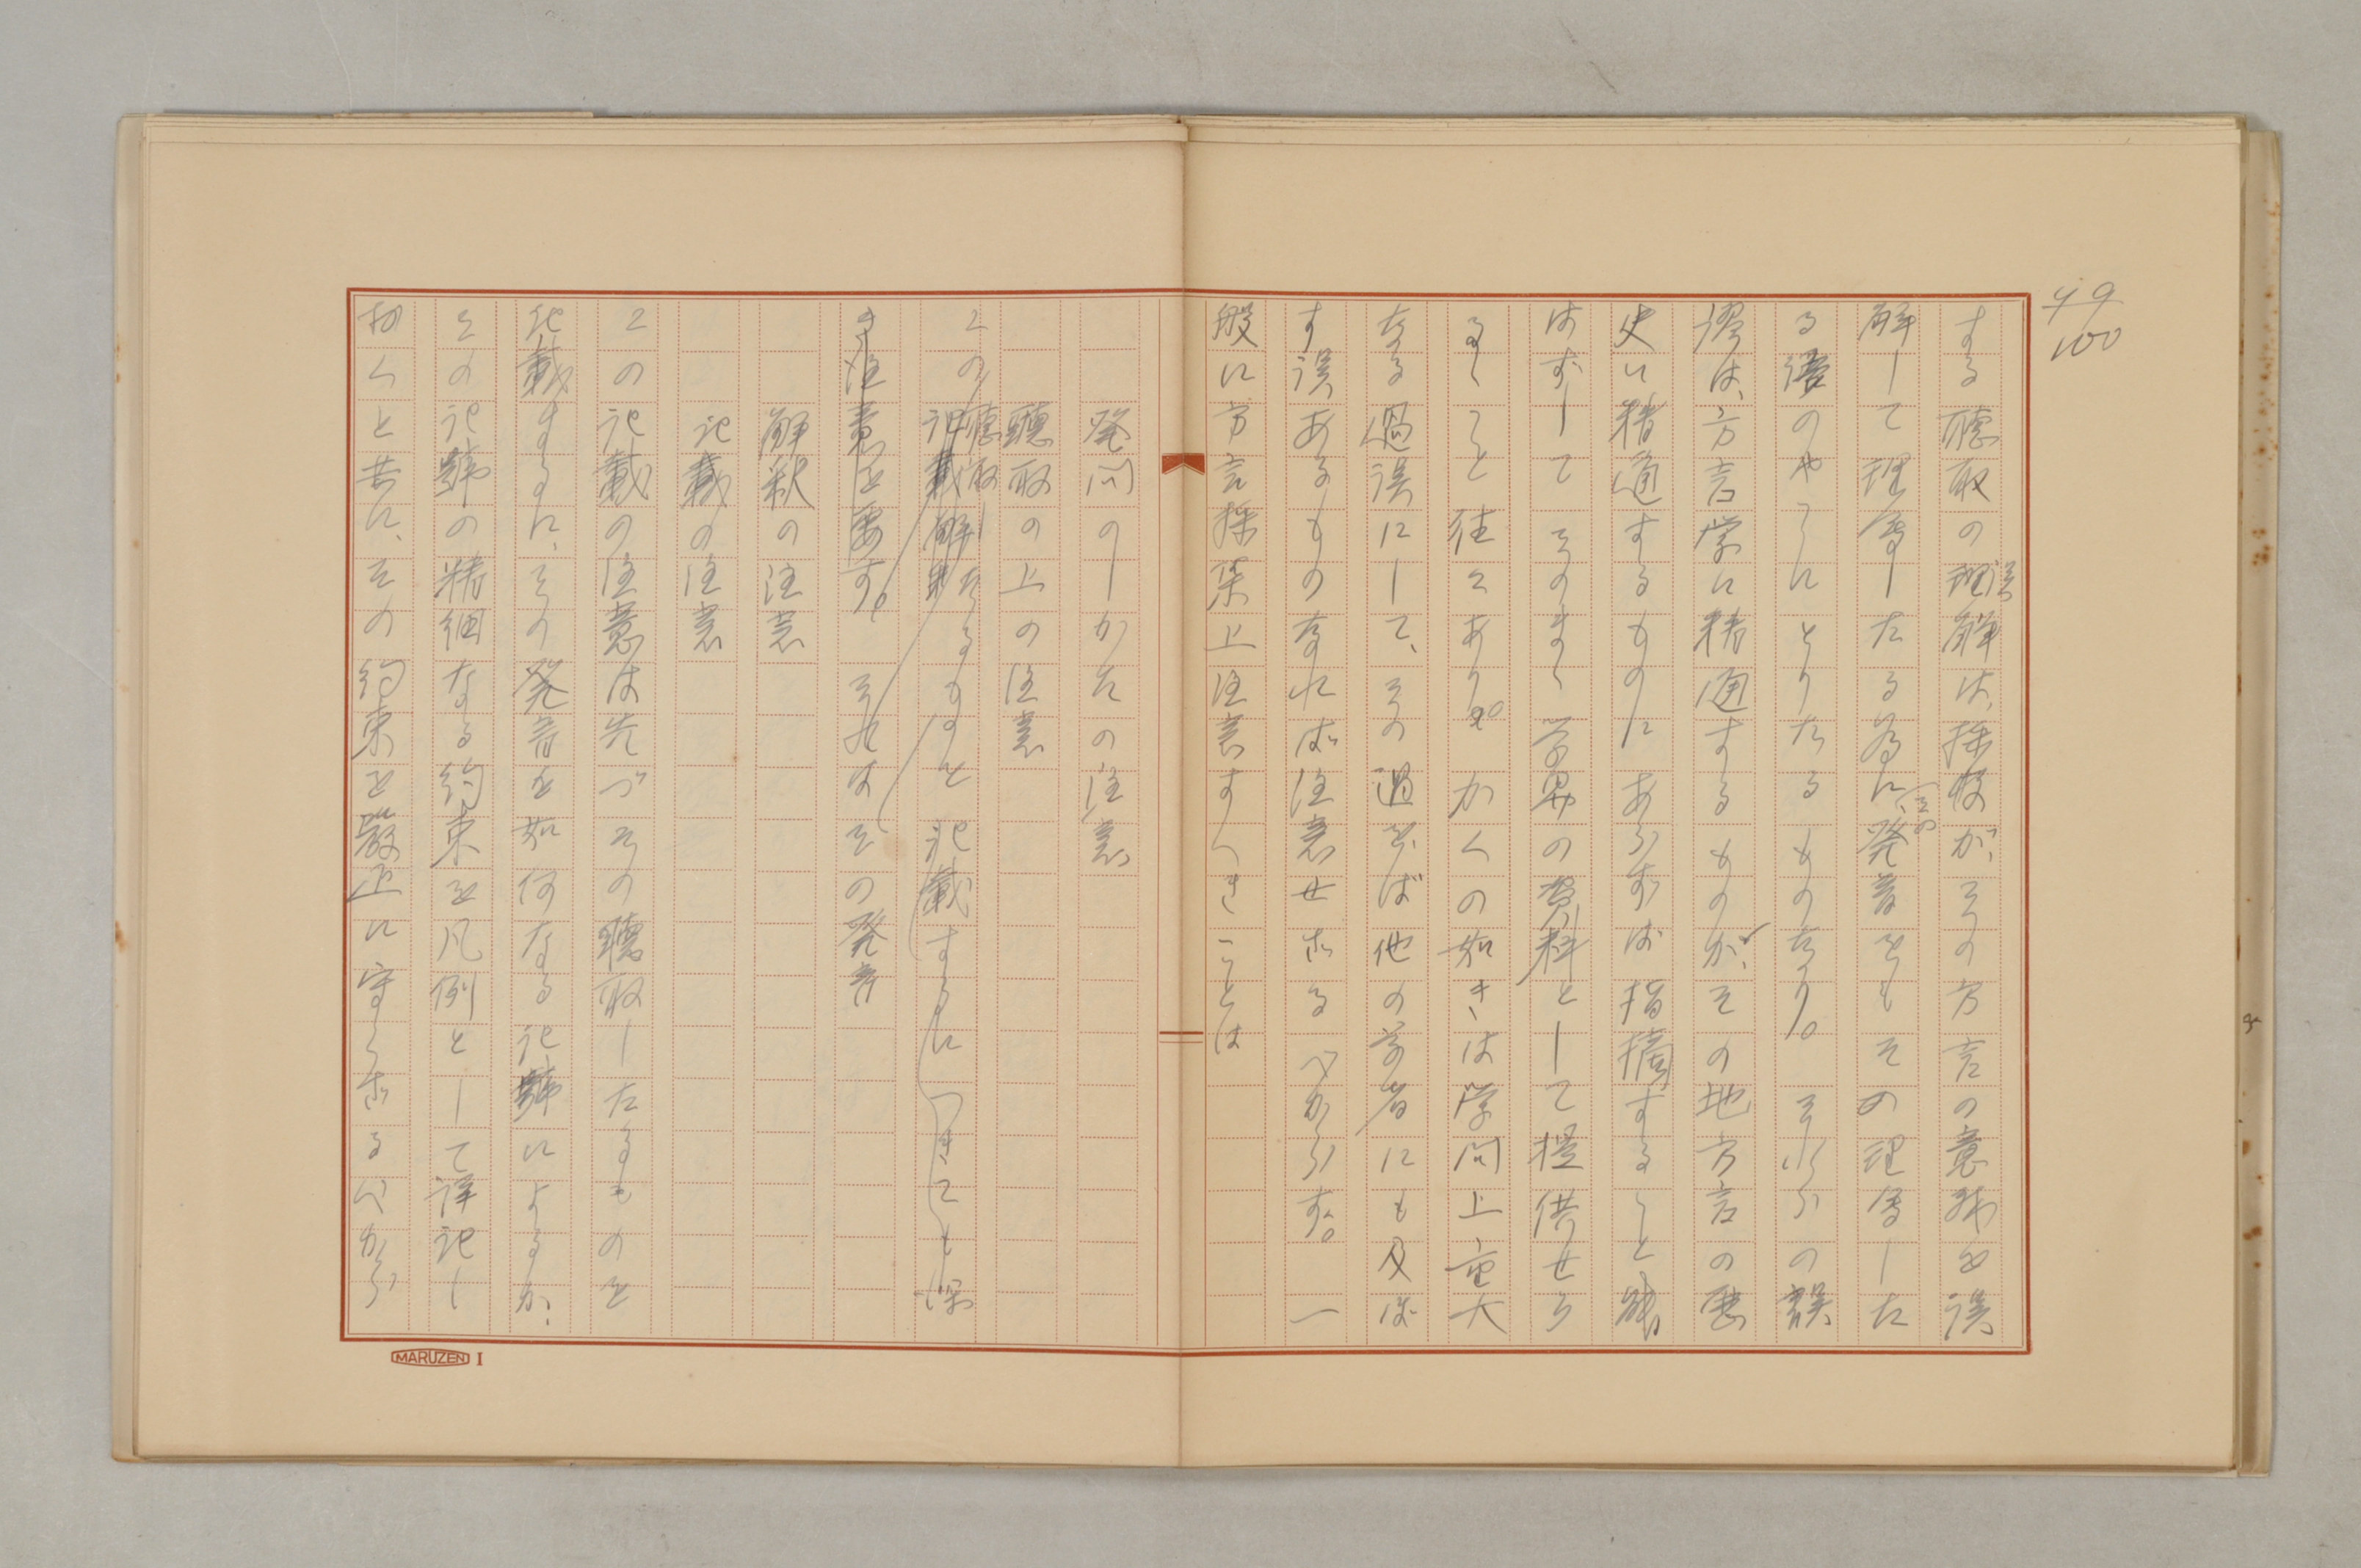 49
100
する聴取の誤解は、採收が、その方言の意味を誤
解して理會したる為に、発音をもその理會した
その
る語のやうにとりたるものなり。それらの誤
謬は、方言学に精通するものが、その地方言の歴
史に精通するものにあらずば指摘すること能
はずしてそのまゝ学界の資料として提供せら
るゝこと往々あり。かくの如きは学問上重大
なる過誤にして、その過をば他の学者にも及ぼ
す誤あるものなれば注意せざるべからず。一
般に方言採集上注意すべきことは
発問のしかたの注意
聽取の上の注意
この記載解釈
聴取したるものを記載するにつきても深
き注意を要す。それはその発音
解釈の注意
記載の注意
この記載の注意は先づその聽取したるものを
記載するに、その発音を如何なる記號によるか、
その記號の精細なる約束を凡例として詳記し
おくと共に、その約束を嚴正に守らざるべから
MARUZEN I